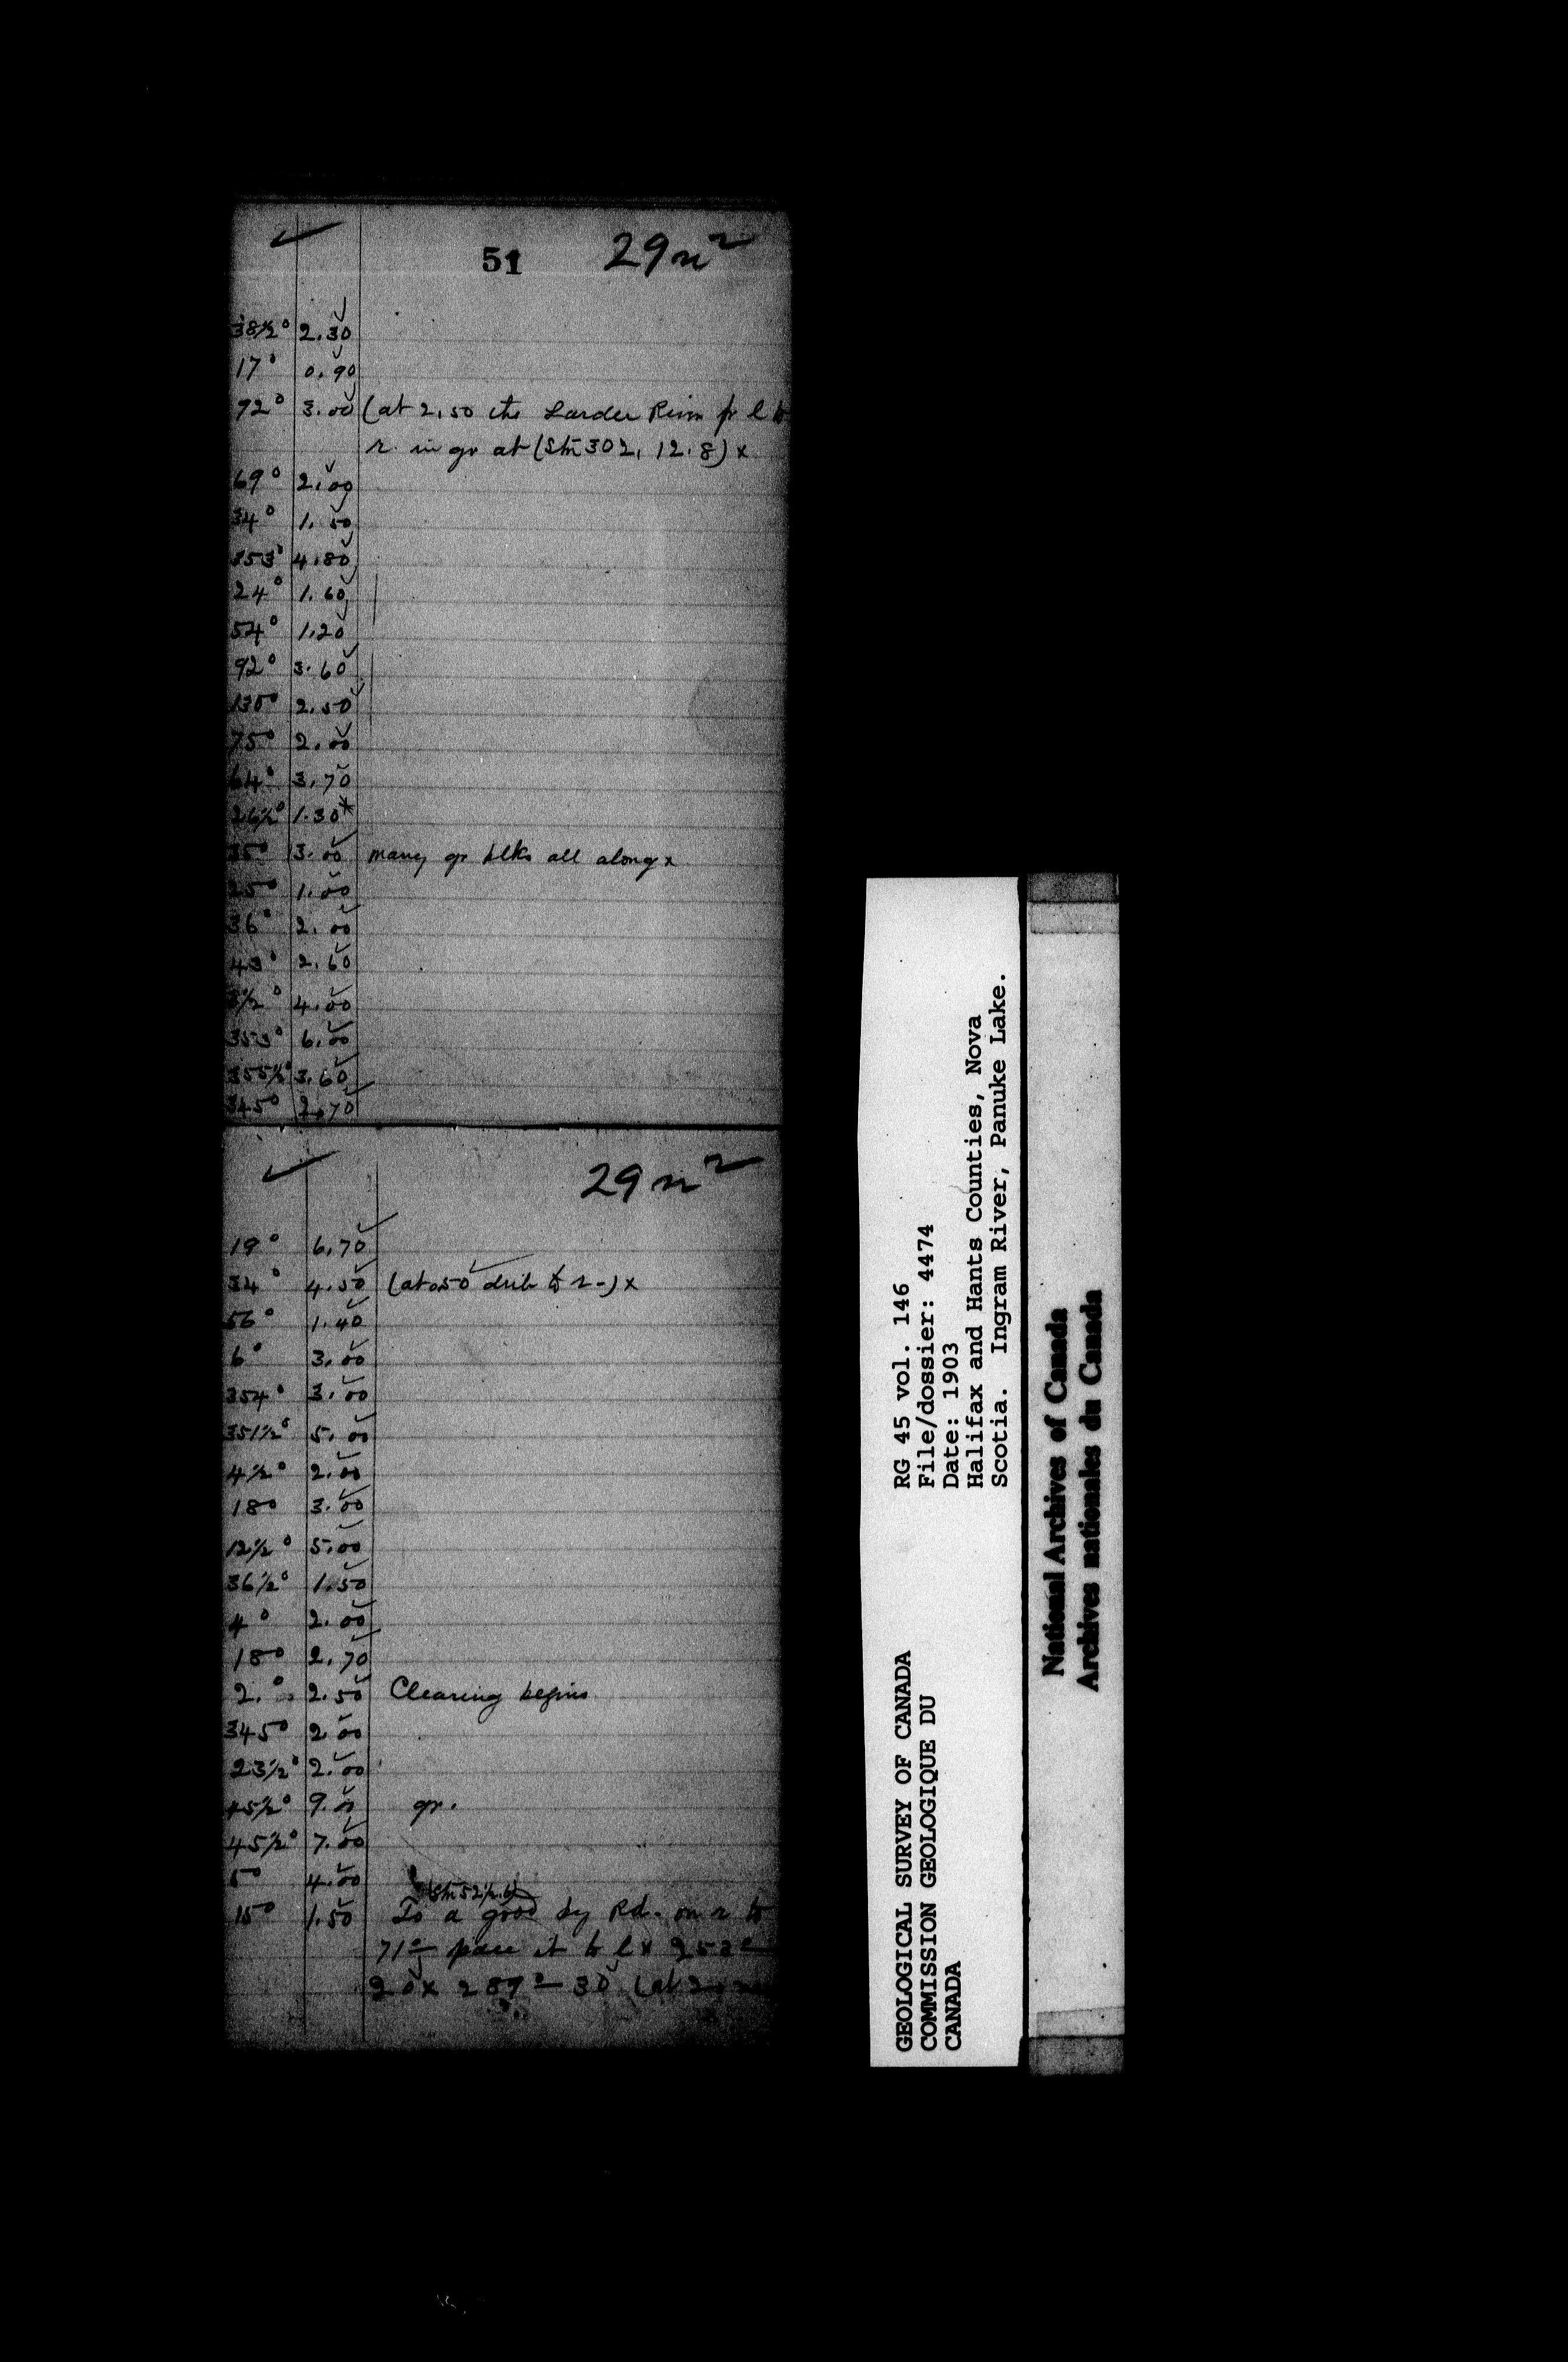 51 29n²
38½° 2.30
17° 0.90
92° 3.00 (at 2.50 cts Larder River fr l to
r. in gr at (Stn 302, 12.8) x
69° 2.00
34° 1.50
353° 4.80
24° 1.60
54° 1.20
92° 3.60
130° 2.50
75° 2.00
64° 3.70
26½° 1.30*
35° 3.00 many gr blks all along x
25° 1.00
36° 2.00
43° 2.60
4.00
353° 6.00
355½° 3.60
345° 2.70
29n²
19° 6.70
34° 4.50 (at .50 to r-) x
56° 1.40
6° 3.00
354° 3.00
351½° 5.00
4½° 2.00
18° 3.00
12½° 5.00
36½° 1.50
4° 2.00
18° 2.70
2.° 2.50 Clearing begins
345° 2.00
23½° 2.00
45½° 9.00 gr.
45½° 7.00
5° 4.00
15° 1.50 To a good by Rd. on r to
71° pace it to l x 252°
20 x 289° — 30 (at
GEOLOGICAL SURVEY OF CANADA
COMMISSION GEOLOGIQUE DU
CANADA
RG 45 vol. 146
File/dossier: 4474
Date: 1903
Halifax and Hants Counties, Nova
Scotia. Ingram River, Panuke Lake.
National Archives of Canada
Archives nationales du Canada